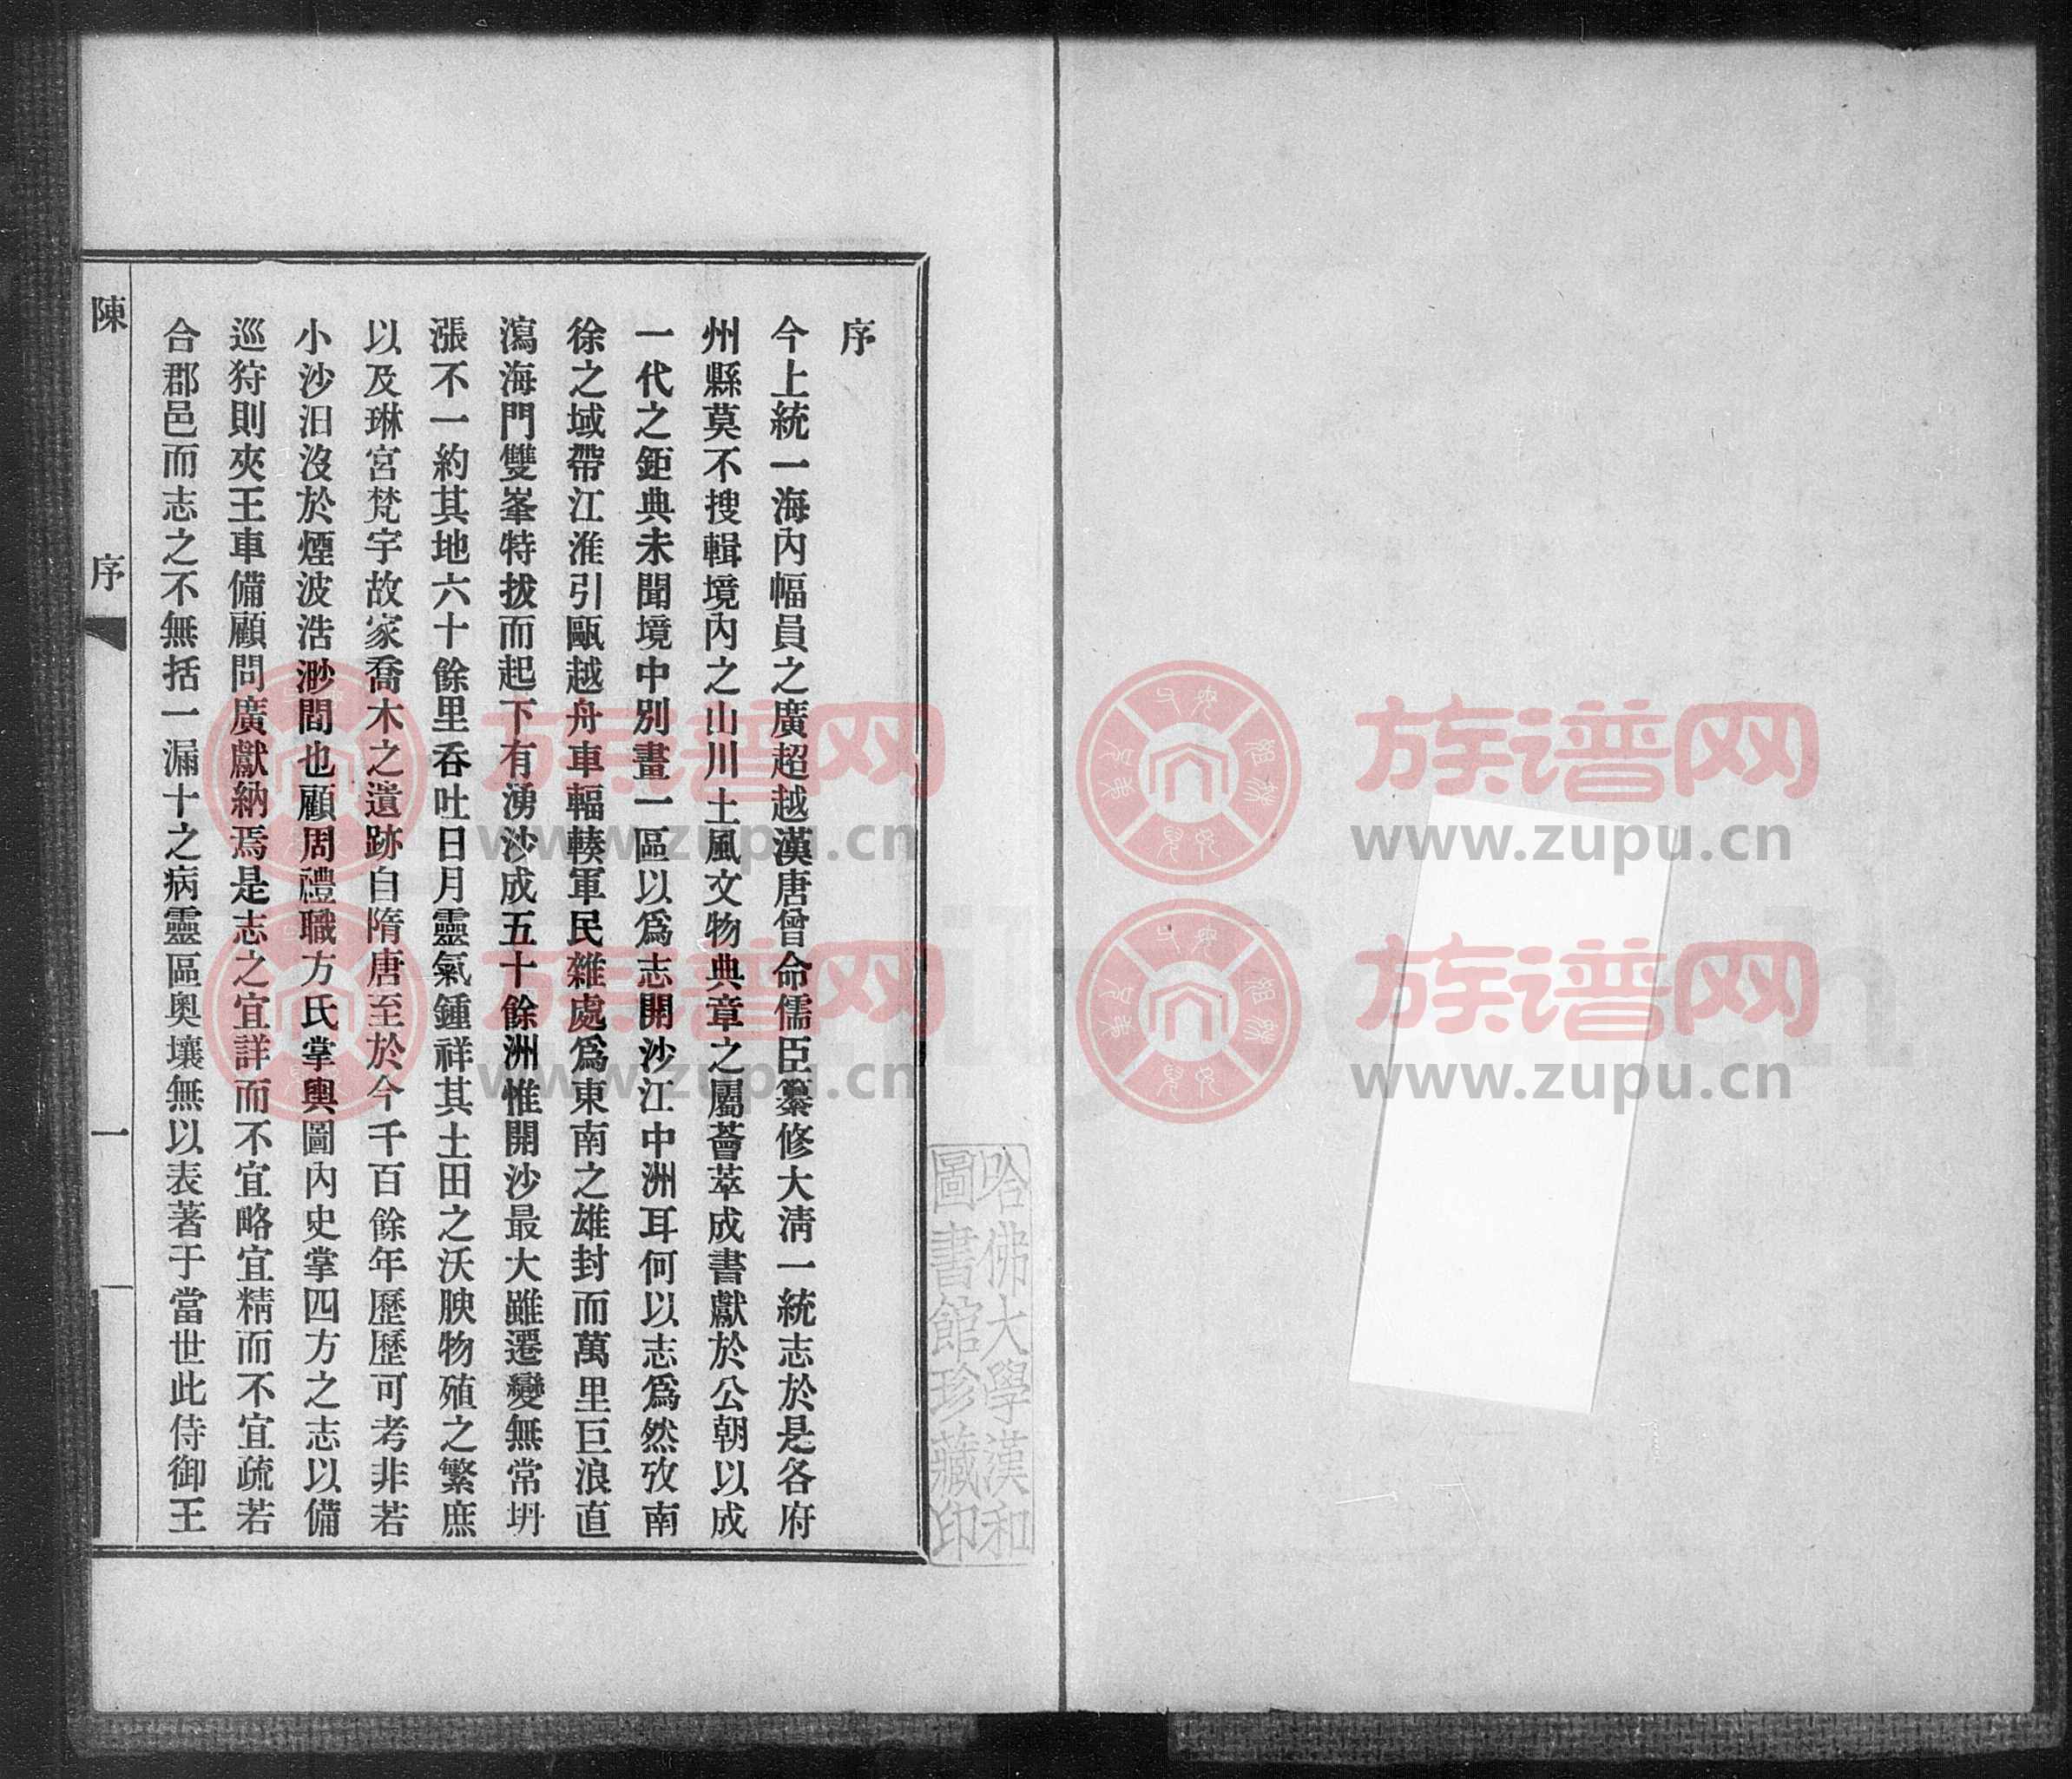 序
今上統一海內幅員之廣超越漢唐曾命儒臣纂修大淸一統志於是各府
州縣莫不搜輯境內之山川土風文物典章之屬薈萃成書獻於公朝以成
一代之鉅典未聞境中別畫一區以爲志開沙江中洲耳何以志爲然攷南
徐之域帶江淮引甌越舟車輻輳軍民雜處爲東南之雄封而萬里巨浪直
瀉海門雙峯特拔而起下有湧沙成五十餘洲惟開沙最大雖遷變無常坍
漲不一約其地六十餘里吞吐日月靈氣鍾祥其土田之沃腴物殖之繁庶
以及琳宮梵宇故家喬木之遺跡自隋唐至於今千百餘年歷歷可考非若
小沙汩沒於煙波浩渺間也顧周禮職方氏掌輿圖內史掌四方之志以備
巡狩則夾王車備顧問廣獻納焉是志之宜詳而不宜略宜精而不宜疏若
合郡邑而志之不無括一漏十之病靈區奧壤無以表著于當世此侍御王
陳
序
一
哈佛大學漢和
圖書館珍藏印
族谱网
www.zupu.cn
族谱网
www.zupu.cn
族谱网
www.zupu.cn
族谱网
www.zupu.cn